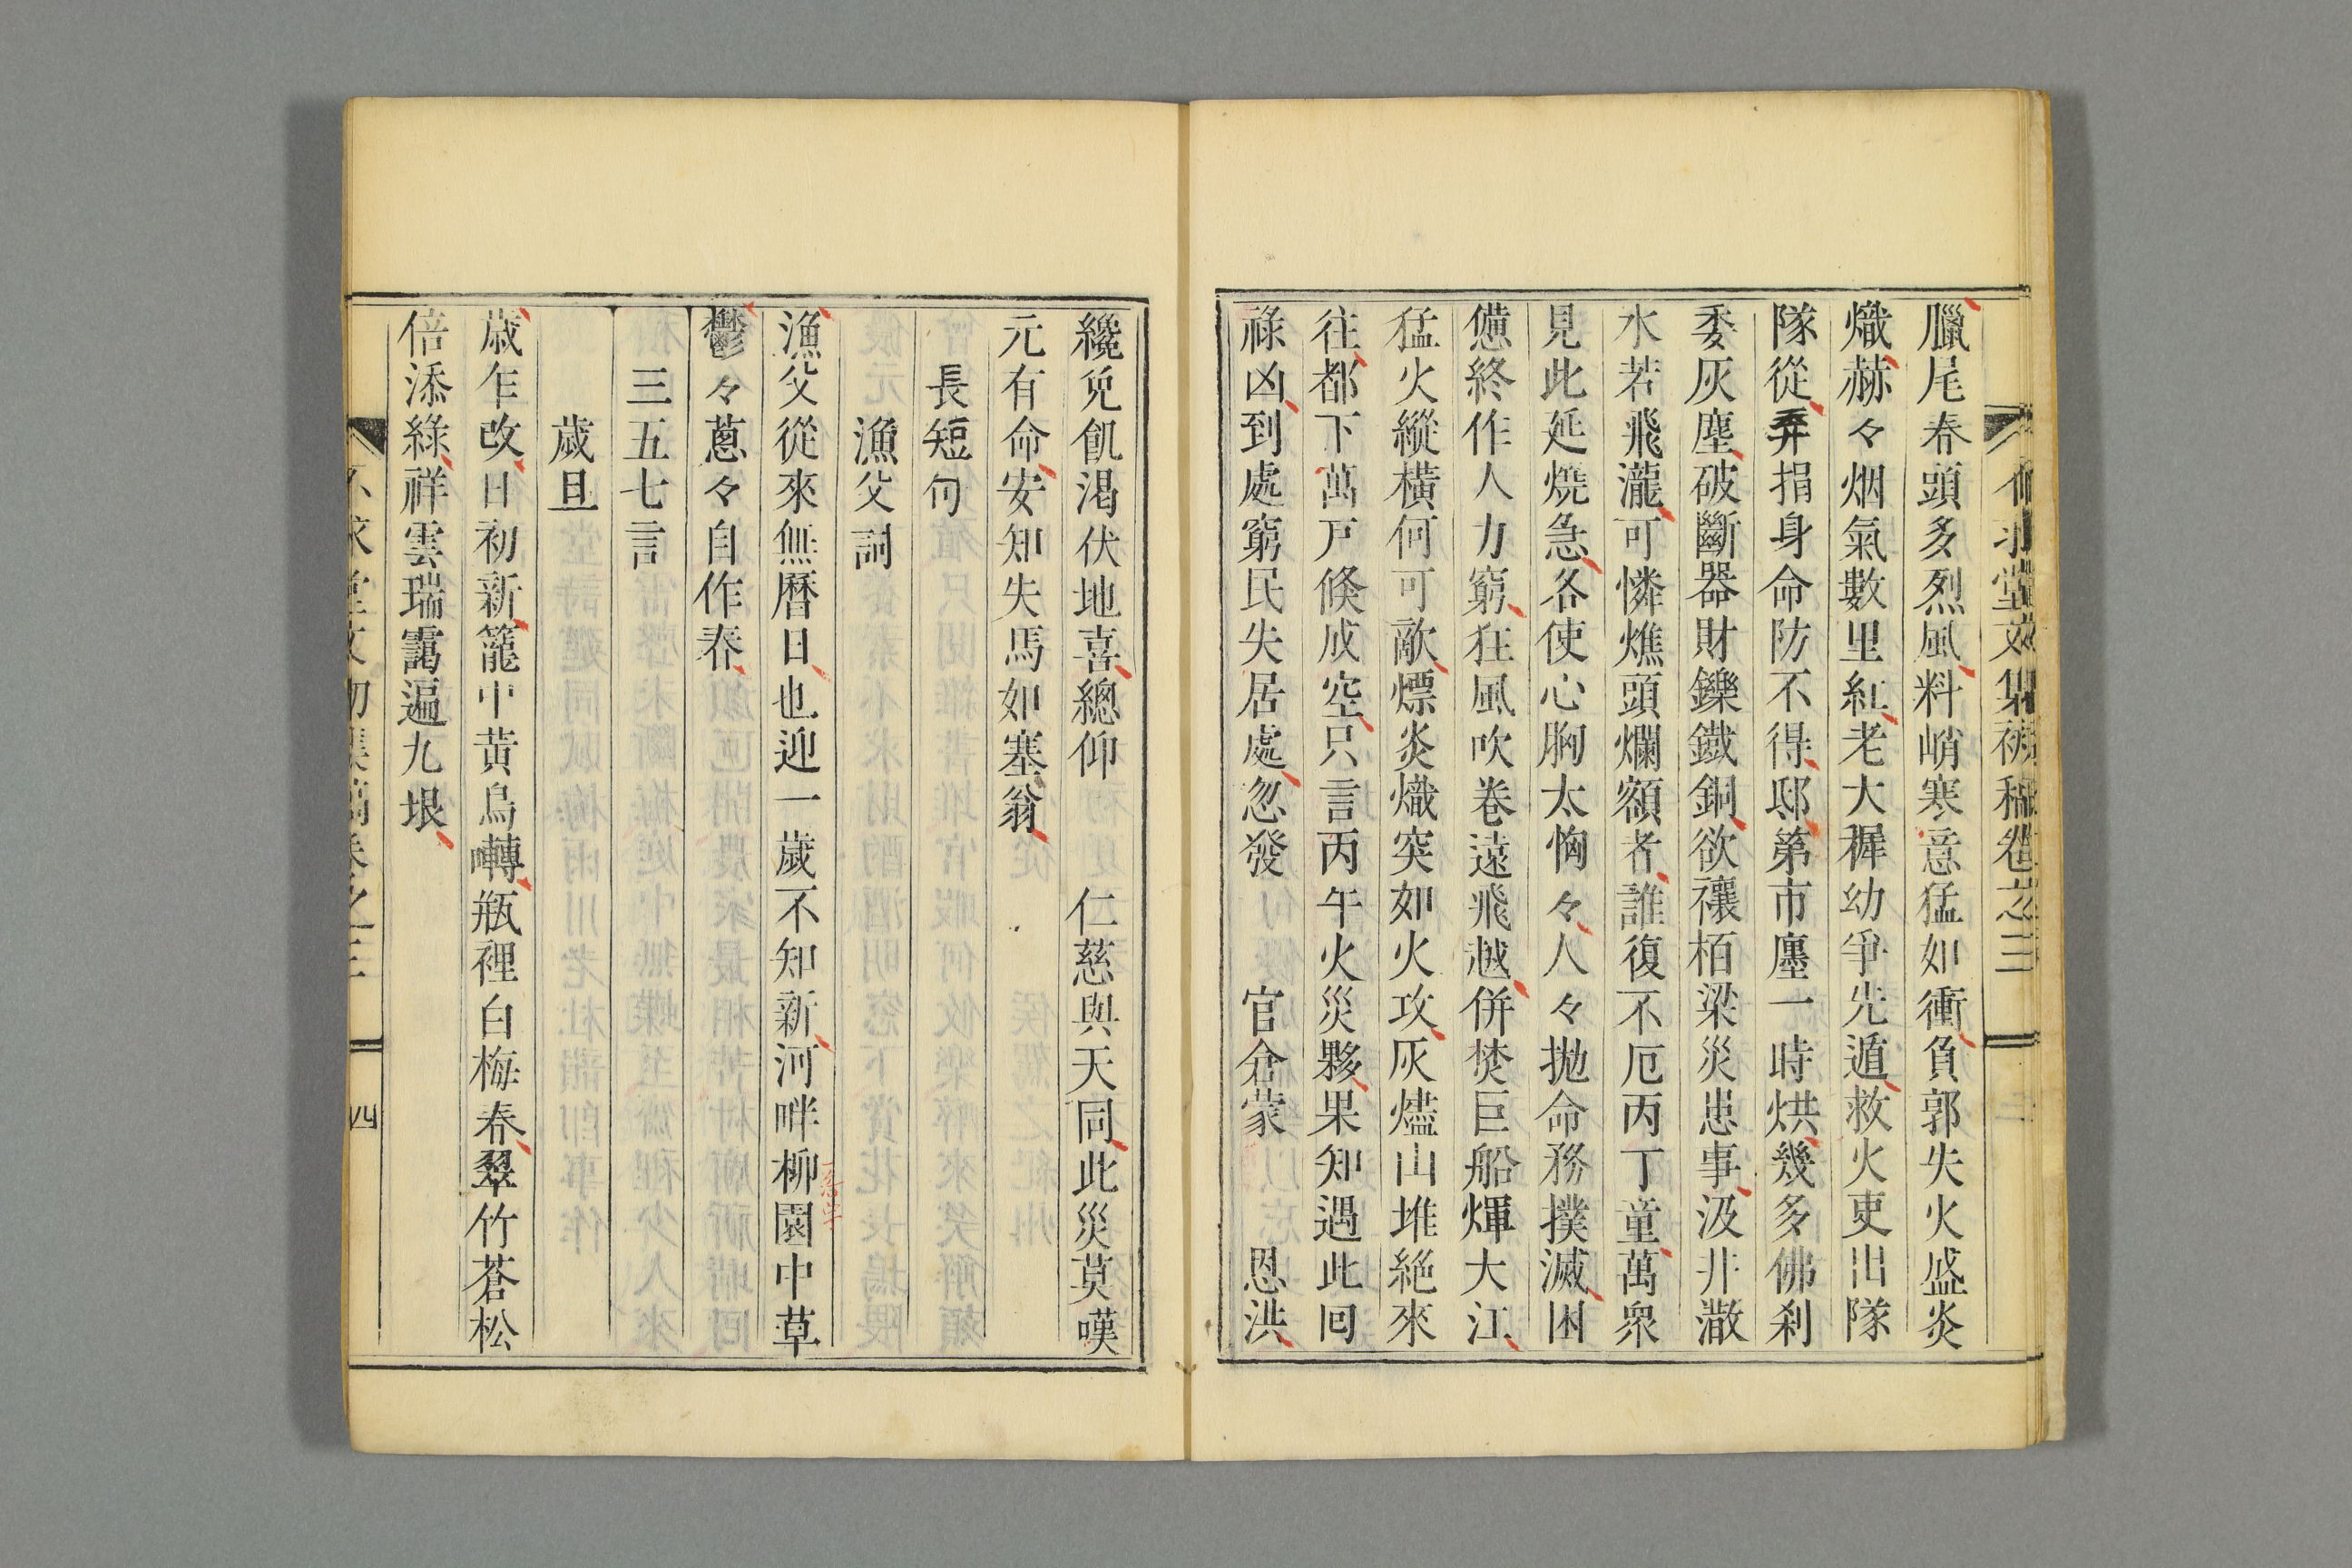 不求堂文集初稿卷之三
臘尾春頭多烈風料峭寒意猛如衝負郭失火盛炎
熾赫々烟氣數里紅老大穉幼爭先遁救火吏出隊
隊從弃捐身命防不得邸第市廛一時烘幾多佛刹
委灰塵破斷器財鑠鐵銅欲禳栢梁災患事汲井潵
水若飛瀧可憐燋頭爛額者誰復不厄丙丁童萬衆
見此延燒急各使心胸太恟々人々拋命務撲滅困
憊終作人力窮狂風吹卷遠飛越併焚巨船煇大江
猛火縱橫何可敵熛炎熾突如火攻灰燼山堆絕來
往都下萬戶倏成空只言丙午火災夥果知遇此回
祿凶到處窮民失居處忽發 官倉蒙 恩洪
纔免飢渴伏地喜總仰 仁慈與天同此災莫嘆
元有命安知失馬如塞翁
長短句
漁父詞
漁父從來無曆日也迎一歲不知新河畔柳園中草
鬱々蔥々自作春
三五七言
歲旦
歲乍改日初新籠中黃鳥囀瓶裡白梅春翠竹蒼松
倍添綠祥雲瑞靄遍九垠
不求堂文初集稿卷之三 四